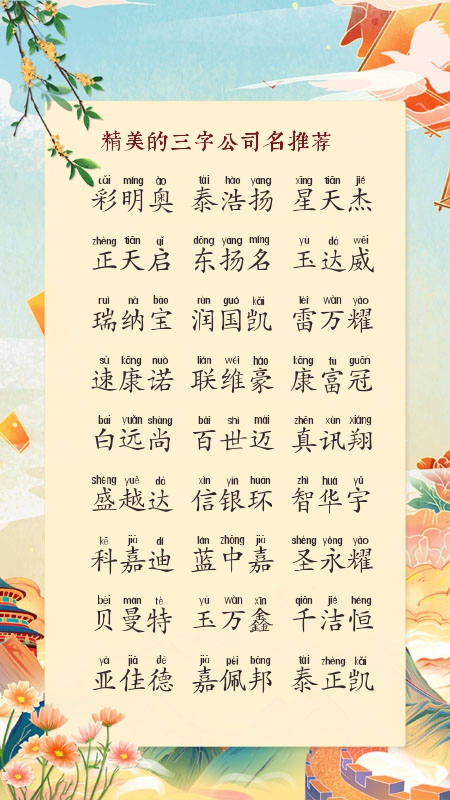 精美的三字公司名推荐
cǎi míng ào tài hào yáng xīng tiān jié
彩明奥 泰浩扬 星天杰
zhèng tiān qǐ dōng yáng míng yù dá wēi
正天启 东扬名 玉达威
ruì nà bǎo rùn guó kǎi léi wàn yào
瑞纳宝 润国凯 雷万耀
sù kāng nuò lián wéi háo kāng fù guān
速康诺 联维豪 康富冠
bái yuǎn shàng bǎi shì mài zhēn xùn xiáng
白远尚 百世迈 真讯翔
shèng yuè dá xìn yín huán zhì huá yǔ
盛越达 信银环 智华宇
kē jiā dí lán zhōng jiā shèng yǒng yào
科嘉迪 蓝中嘉 圣永耀
bèi màn tè yù wàn xīn qiān jié héng
贝曼特 玉万鑫 千洁恒
yà jiā dé jiā pèi bāng tài zhèng kǎi
亚佳德 嘉佩邦 泰正凯